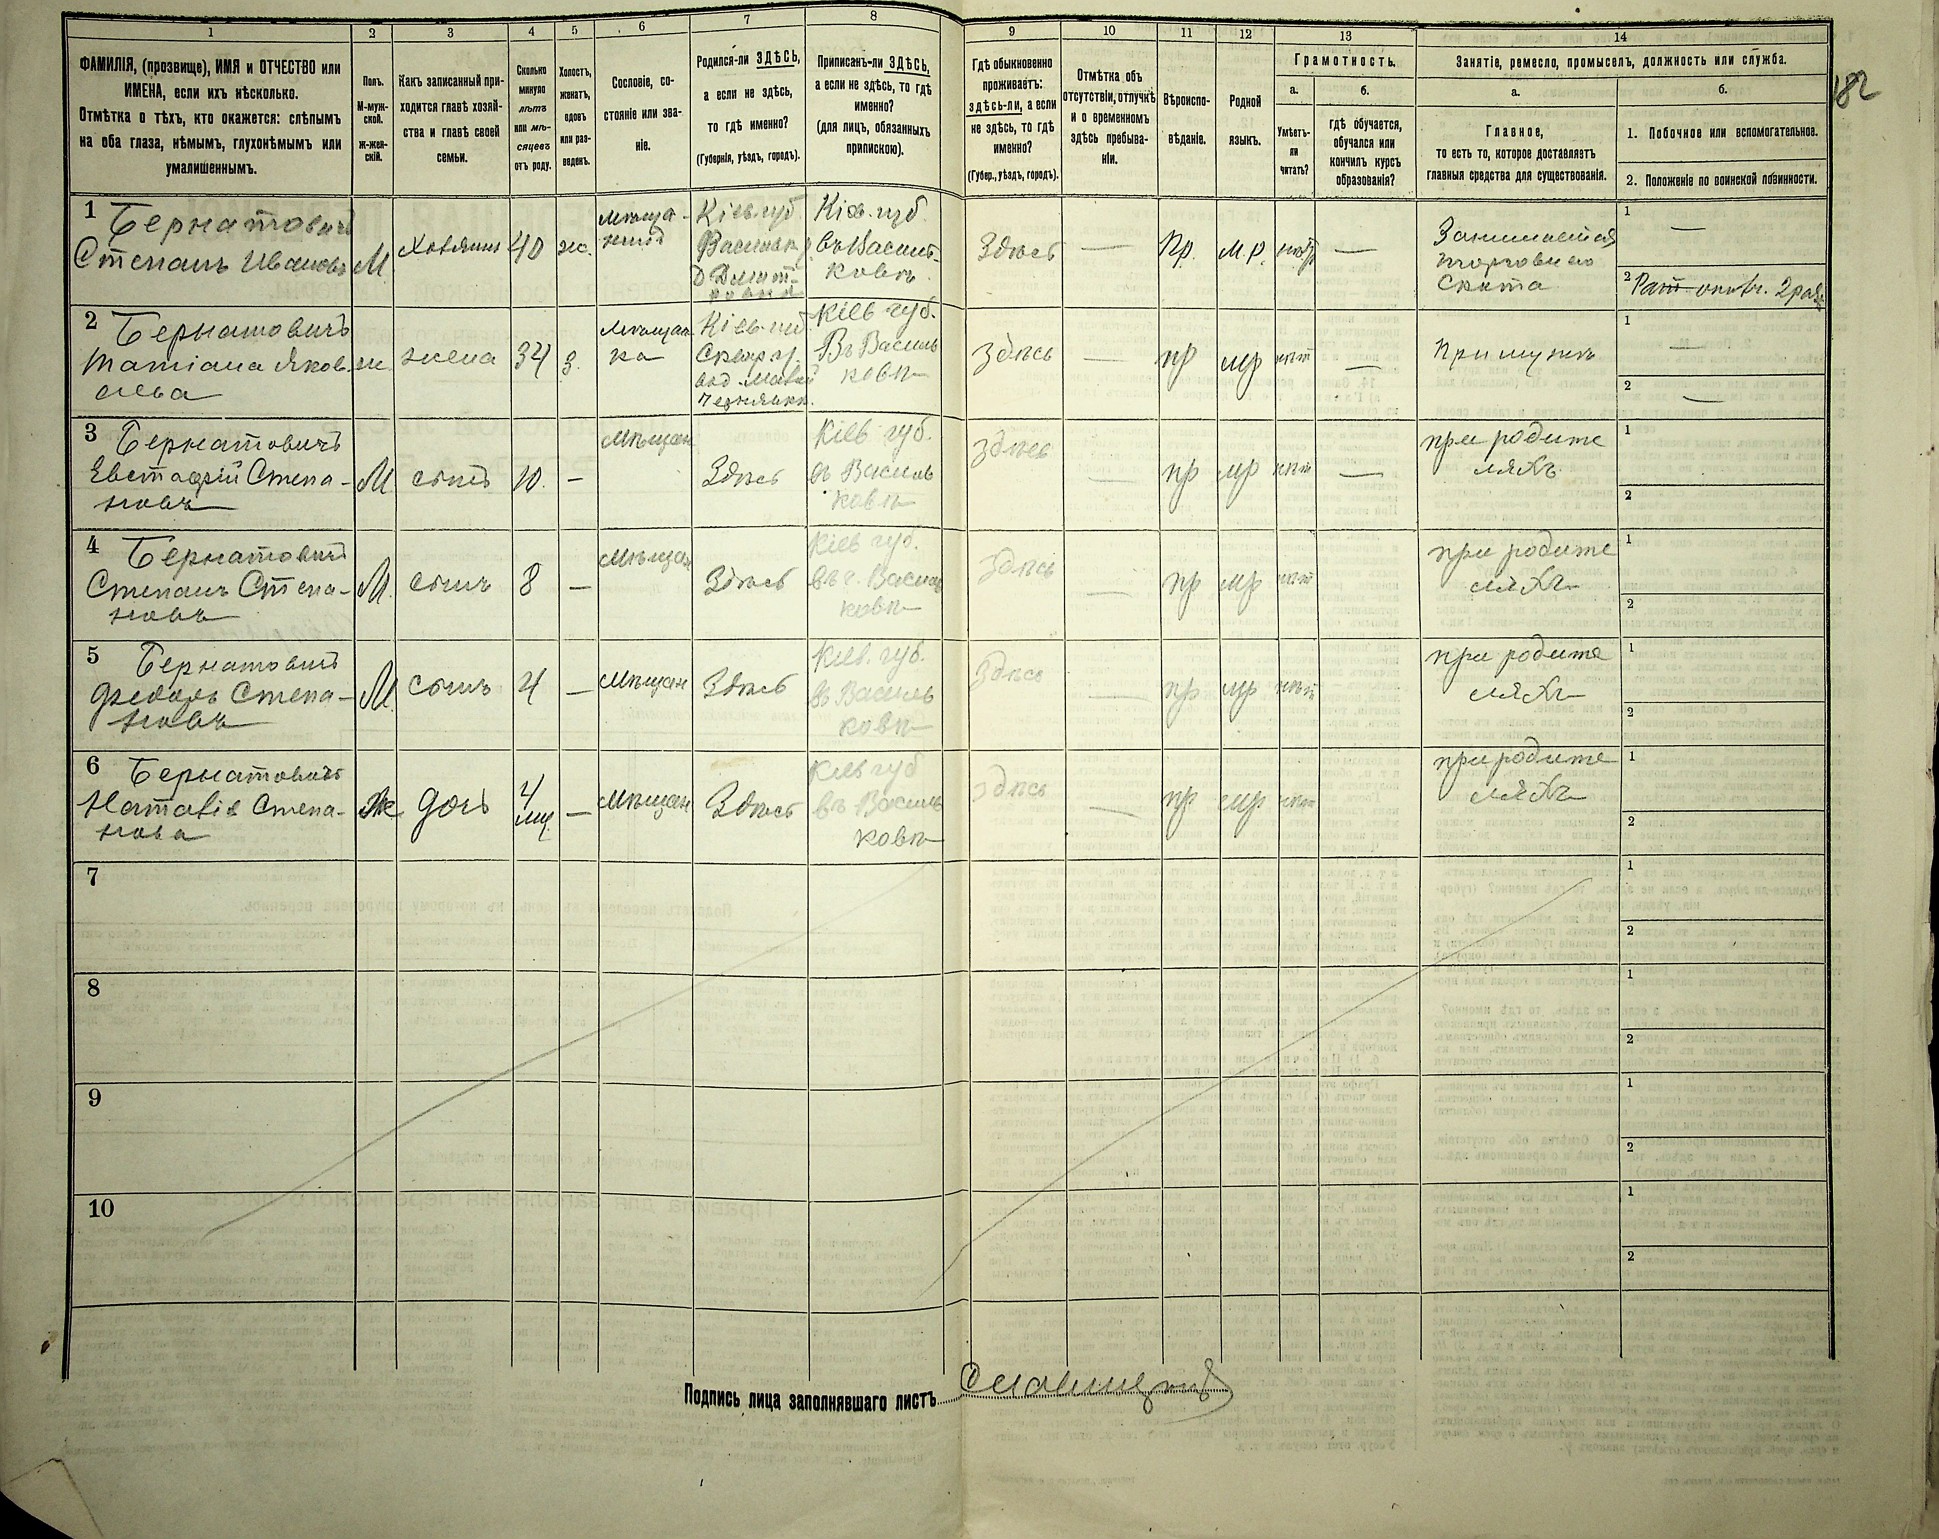 1 2 3 4 5 6 7 8 9 10 11 12 13 14
ФАМИЛІЯ, (прозвище), ИМЯ и ОТЧЕСТВО или
ИМЕНА, если ихъ нѣсколько.
Отмѣтка о тѣхъ, кто окажется: слѣпымъ
на оба глаза, нѣмымъ, глухонѣмымъ или
умалишеннымъ.
Полъ.
М-муж-
ской.
Ж-жен-
скій.
Какъ записанный при-
ходится главѣ хозяй-
ства и главѣ своей
семьи.
Сколько
минуло
лѣтъ
или мѣ-
сяцевъ
отъ роду.
Холостъ,
женатъ,
вдовъ
или раз-
веденъ.
Сословіе, со-
стояніе или зва-
ніе.
Родился-ли ЗДѢСЬ,
а если не здѣсь,
то гдѣ именно?
(Губернія, уѣздъ, городъ).
Приписанъ-ли ЗДѢСЬ,
а если не здѣсь, то гдѣ
именно?
(для лицъ, обязанныхъ
припискою).
Гдѣ обыкновенно
проживаетъ:
здѣсь-ли, а если
не здѣсь, то гдѣ
именно?
(Губер., уѣздъ, городъ).
Отмѣтка объ
отсутствіи, отлучкѣ
и о временномъ
здѣсь пребыва-
ніи.
Вѣроиспо-
вѣданіе.
Родной
языкъ.
Грамотность.
а.
Умѣетъ-
ли
читать?
б.
гдѣ обучается,
обучался или
кончилъ курсъ
образованія?
Занятіе, ремесло, промыселъ, должность или служба.
а.
Главное,
то есть то, которое доставляетъ
главныя средства для существованія.
б.
1. Побочное или вспомогательное.
2. Положеніе по воинской повинности.
182
1 Бернатовичъ
Степанъ Ивановъ
М
Хозяинъ
40
ж.
Мѣща-
нинъ
Кіев. губ.
Васильк. у.
Кіев. губ.
въ Василь-
ковѣ
Здѣсь
—
Пр.
м.р.
—
Занимается
торговлею
Скота
1 —
2
2 Бернатовичъ
Татіана Яков
лева
ж
жена
34
з.
Мѣщан
ка
Кіев. губ.
Сквир. у.
Кіев губ.
Въ Василь
ковѣ
здѣсь
—
пр
мр
нѣт
—
При мужѣ
1 —
2 —
3 Бернатовичъ
Евстафій Степа-
новъ
М
сынъ
10.
—
Мѣщан
Здѣсь
Кіев губ.
въ Василь
ковѣ
здѣсь
—
пр
мр
нѣт
—
при родите
ляхъ
1
2
4 Бернатовичъ
Степанъ Степа-
новъ
М.
сынъ
8
—
Мѣщан
Здѣсь
Кіев губ.
въ г. Василь
ковѣ
Здѣсь
—
пр
мр
нѣт
при родите
ляхъ
1
2
5 Бернатовичъ
Федоръ Степа-
новъ
М.
сынъ
4
—
Мѣщан
Здѣсь
Кіев. губ.
въ Василь
ковѣ
Здѣсь
—
пр
мр
нѣт
при родите
ляхъ
1
2
6 Бернатовичъ
Наталія Степа-
нова
Ж
дочь
4
мц.
—
Мѣщан
Здѣсь
Кіев губ
въ Василь
ковѣ
здѣсь
—
пр
мр
нѣт
при родите
ляхъ
1
2
7
1
2
8
1
2
9
1
2
10
1
2
Подпись лица заполнявшаго листъ